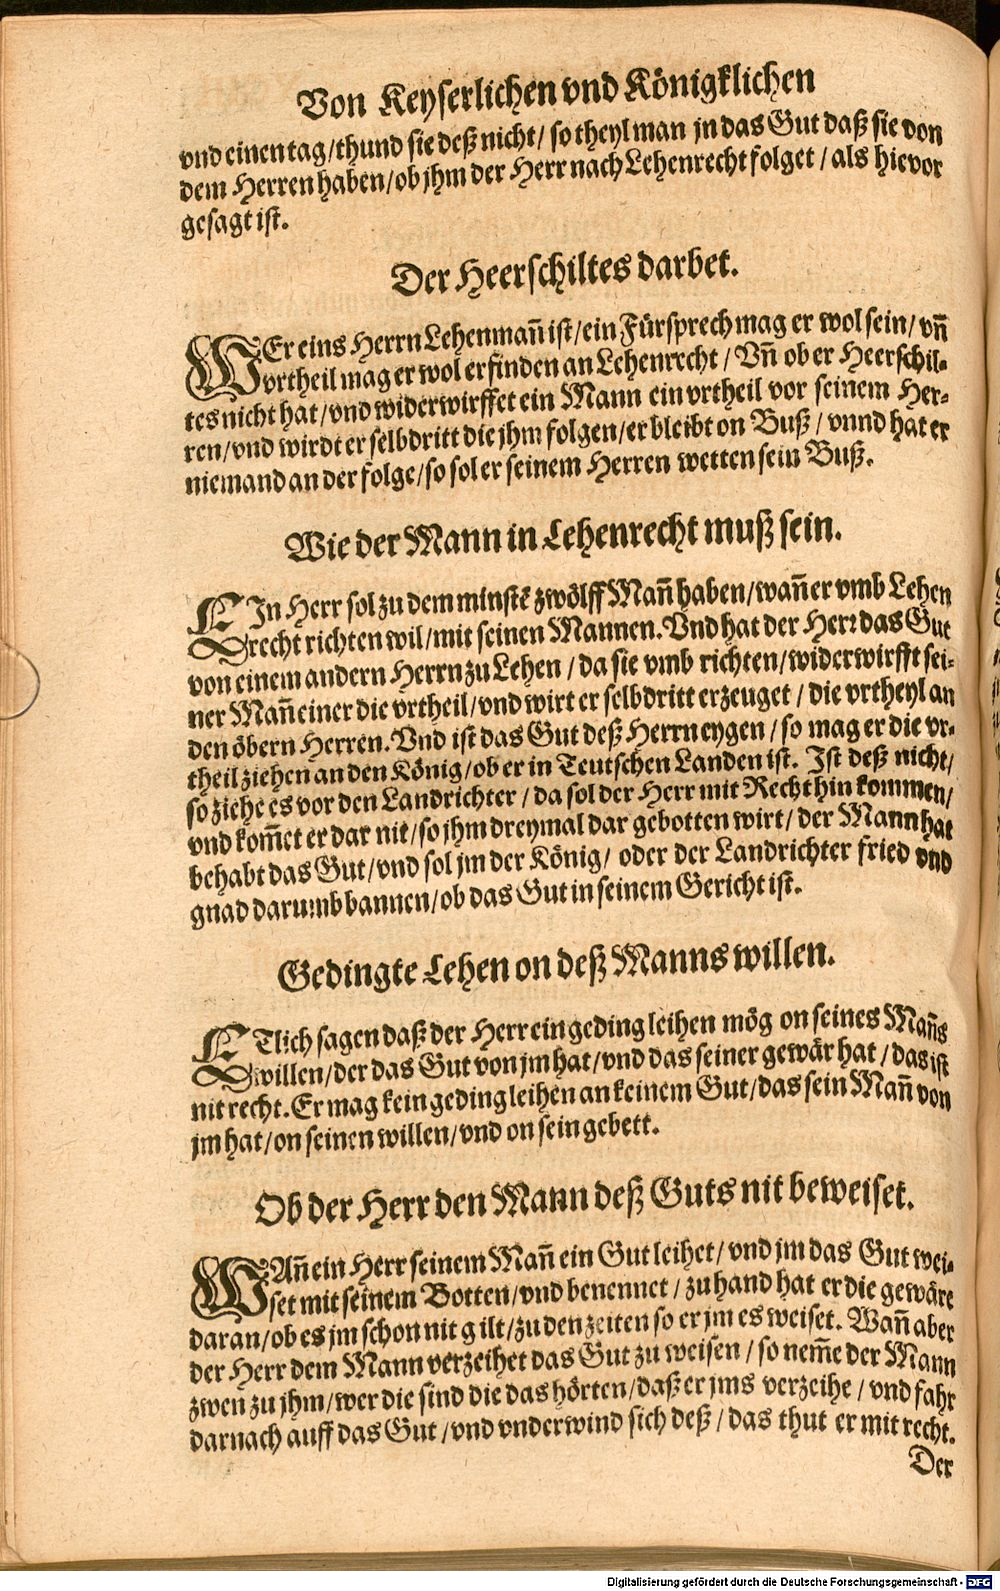 Von Keyserlichen vnd Königklichen
vnd einen tag/thund sie deß nicht/ so theyl man jn das Gut daß sie von
dem Herren haben/ob jhm der Herr nach Lehenrecht folget / als hievor
gesagt ist.
Der Heerschiltes darbet.
WEr eins Herrn Lehenmañ ist/ein Fürsprech mag er wol sein/ vñ
vrtheil mag er wol erfinden an Lehenrecht / Vñ ob er Heerschil-
tes nicht hat/vnd widerwirffet ein Mann ein vrtheil vor seinem Her-
ren/vnd wirdt er selbdritt die jhm folgen/er bleibt on Buß / vnnd hat er
niemand an der folge/so sol er seinem Herren wetten sein Buß.
Wie der Mann in Lehenrecht muß sein.
EIn Herr sol zu dem minstẽ zwölff Mañ haben/wañ er vmb Lehen
recht richten wil/mit seinen Mannen. Vnd hat der Herr das Gut
von einem andern Herrn zu Lehen / da sie vmb richten/widerwirfft sei-
ner Mañ einer die vrtheil/vnd wirt er selbdritt erzeuget / die vrtheyl an
den öbern Herren. Vnd ist das Gut deß Herrn eygen / so mag er die vr-
theil ziehen an den König/ob er in Teutschen Landen ist. Ist deß nicht/
so ziehe es vor den Landrichter / da sol der Herr mit Recht hin kommen/
vnd kom̃et er dar nit/so jhm dreymal dar gebotten wirt/ der Mann hat
behabt das Gut/vnd sol jm der König/ oder der Landrichter fried vnd
gnad darumb bannen/ob das Gut in seinem Gericht ist.
Gedingte Lehen on deß Manns willen.
ETlich sagen daß der Herr ein geding leihen mög on seines Mañs
willen/der das Gut von jm hat/vnd das seiner gewär hat / das ist
nit recht. Er mag kein geding leihen an keinem Gut/das sein Mañ von
jm hat/on seinen willen/vnd on sein gebett.
Ob der Herr den Mann deß Guts nit beweiset.
WAñ ein Herr seinem Mañ ein Gut leihet/ vnd jm das Gut wei-
set mit seinem Botten/vnd benennet / zu hand hat er die gewäre
daran/ob es jm schon nit gilt/zu den zeiten so er jm es weiset. Wañ aber
der Herr dem Mann verzeihet das Gut zu weisen / so nem̃e der Mann
zwen zu jhm/wer die sind die das hörten/daß er jms verzeihe / vnd fahr
darnach auff das Gut /vnd vnderwind sich deß / das thut er mit recht.
Der
Digitalisierung gefördert durch die Deutsche Forschungsgemeinschaft - DFG